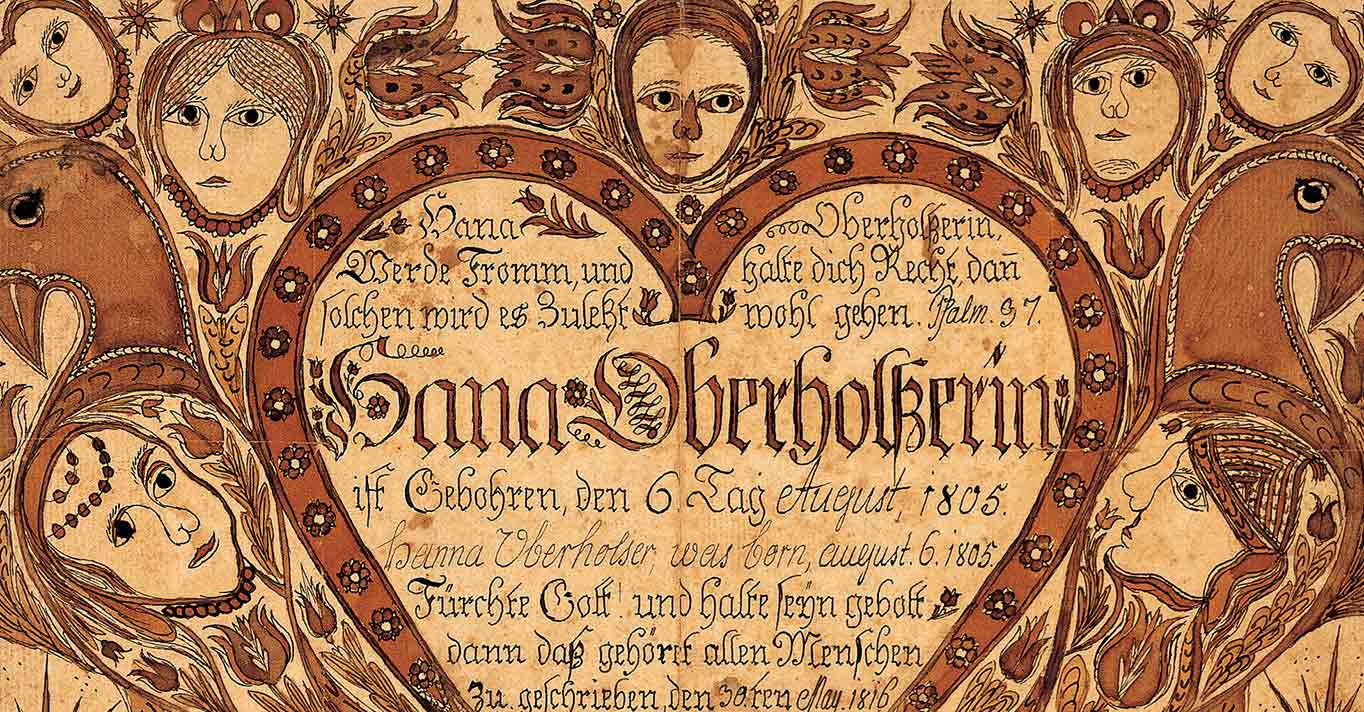 Hana Oberholtzerin,
Werde Fromm, und halte dich Recht, dañ
solchen wird es Zuletzt wohl gehen. Psalm. 37.
Hana Oberholtzerin
ist Gebohren, den 6. Tag August, 1805.
hanna Oberholser, was born, august. 6. 1805.
Fürchte Gott! und halte seÿn gebott
dann daß gehöret allen Menschen
Zu. geschrieben, den 30.ten May. 1816